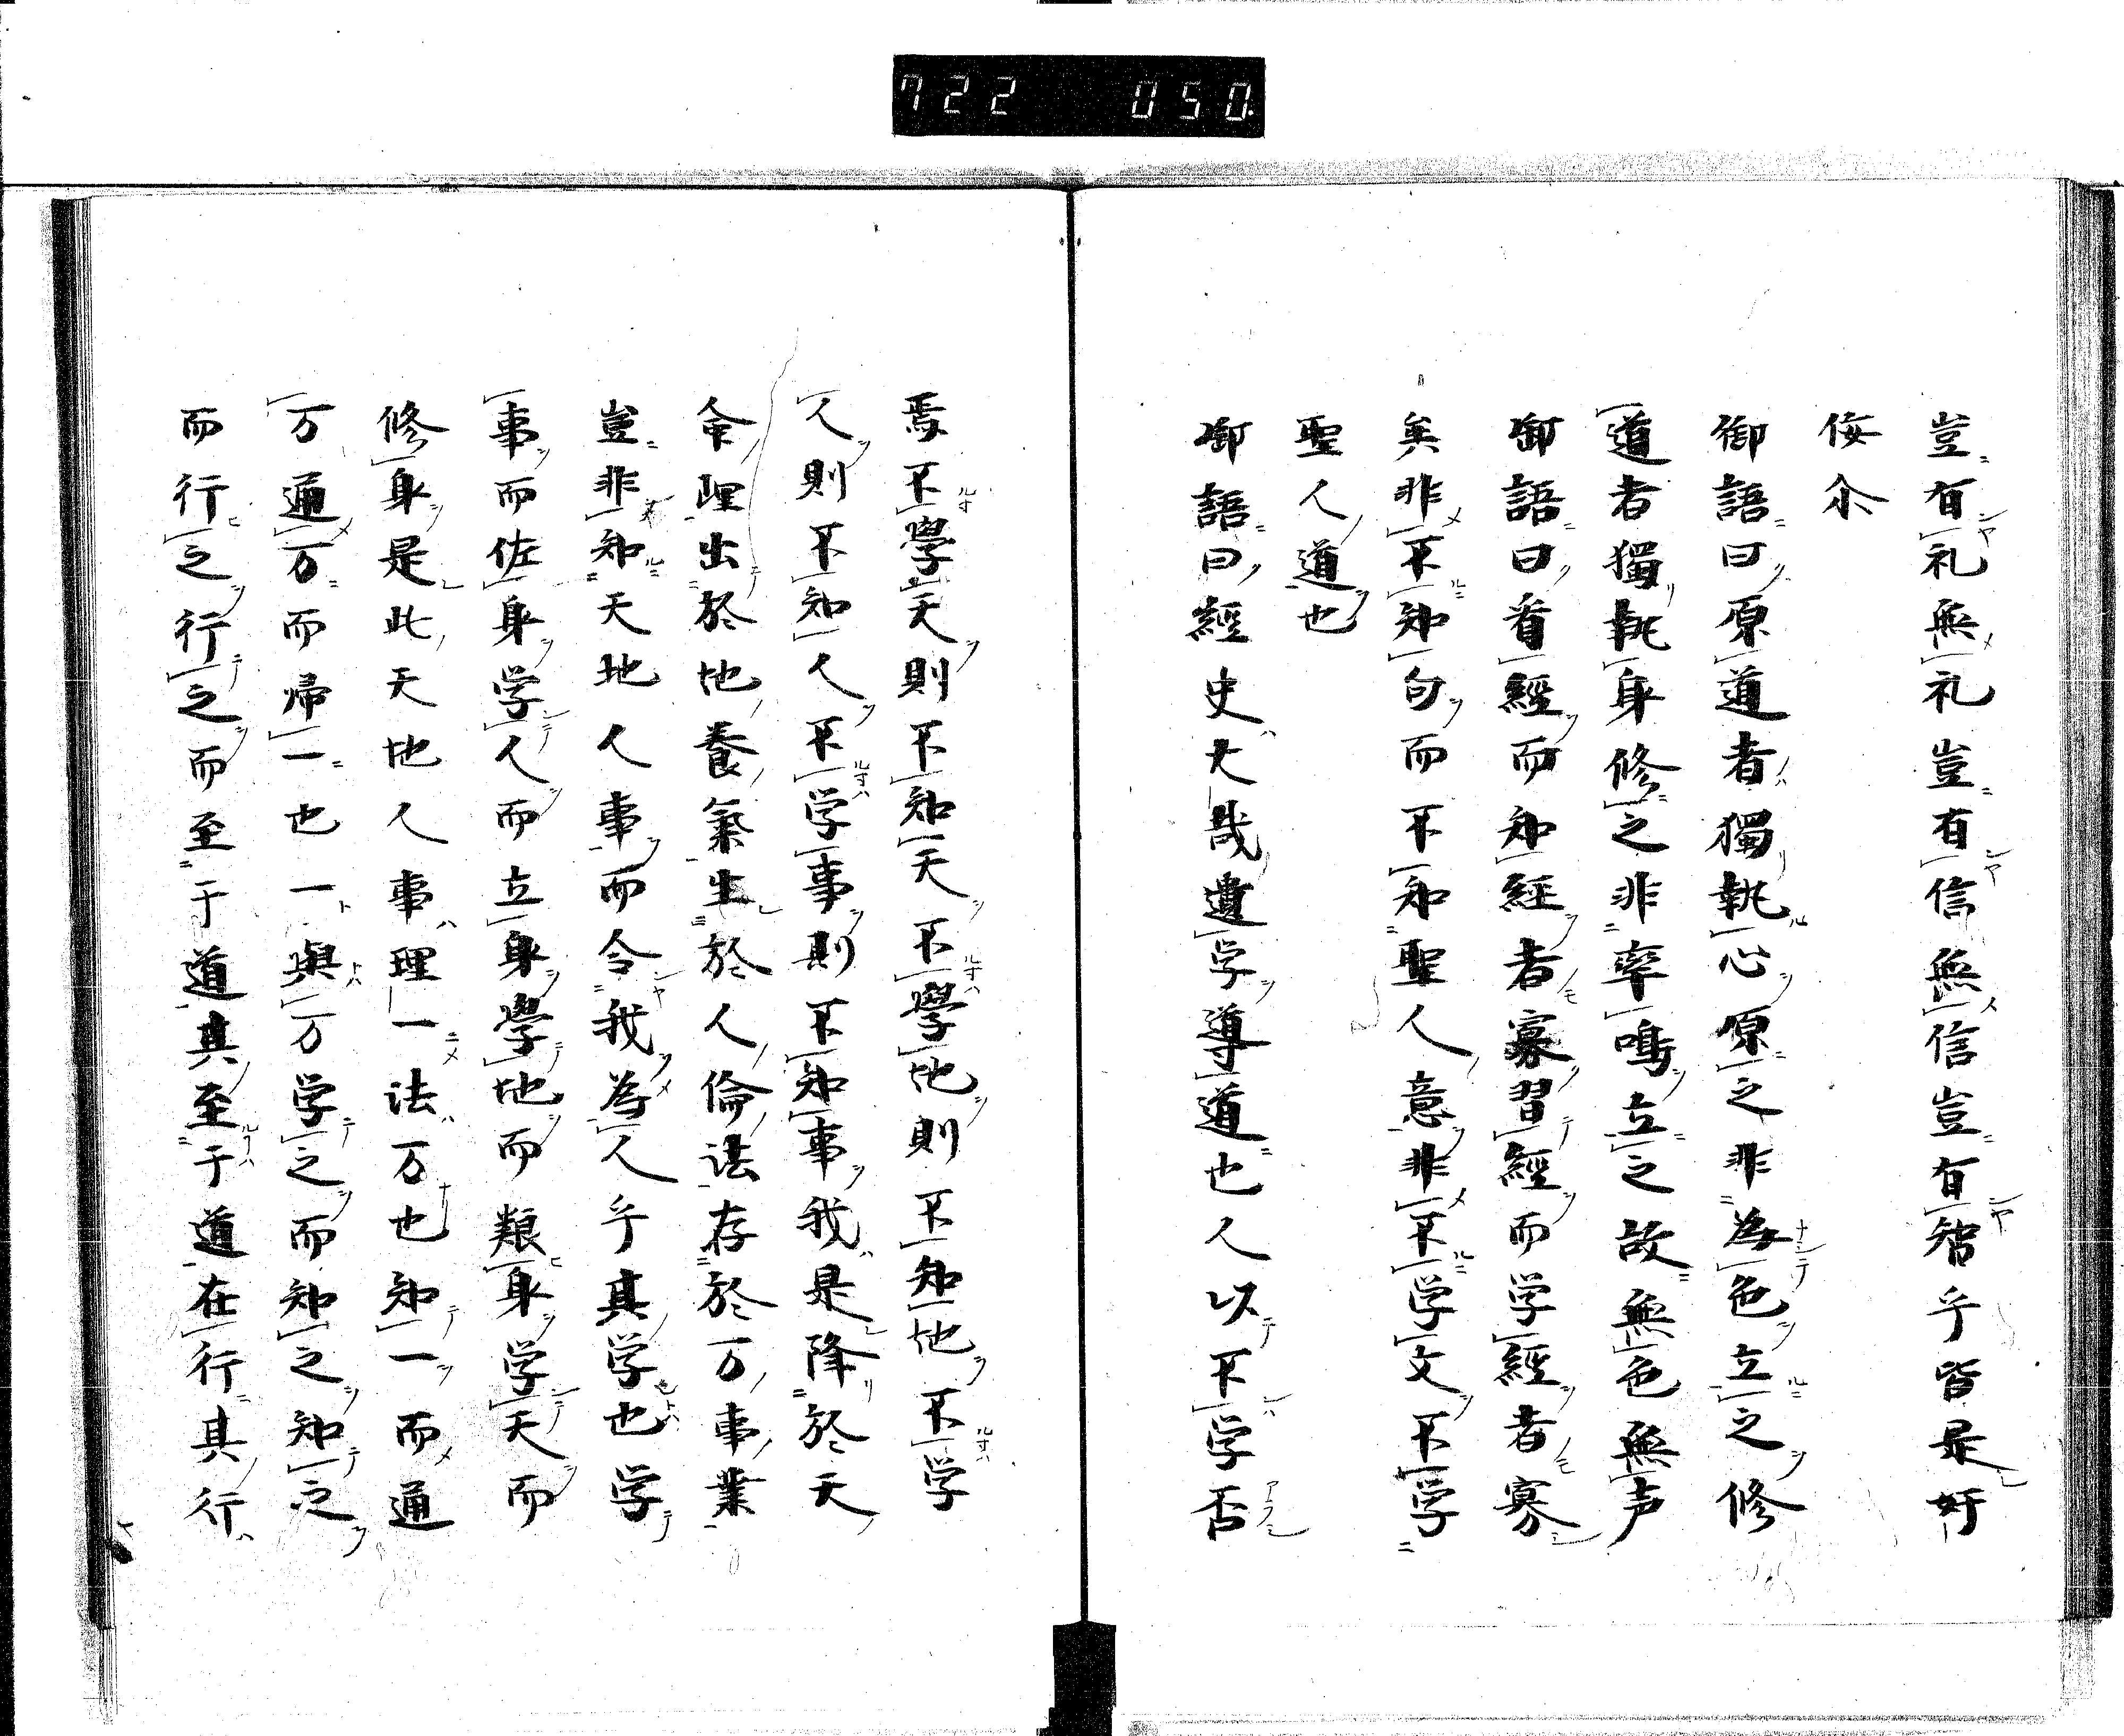 722 050.
豈有礼無礼豈有信無信豈有智乎皆是奸
佞尒
御語曰原道者獨執心原之非為色立之修
道者獨執身修之非率鳴立之故無色無声
御語曰看經而知經者寡習經而学經者寡
矣非不知句而不知聖人意非不学文不学
聖人道也
御語曰經史大哉遺学導道也人以不学否
焉不學天則不知天不學地則不知地不学
人則不知人不学事則不知事我是降於天
命理出於地養氣生於人倫法存於万事業
豈非知天地人事而令我為人乎其学也学
事而佐身学人而立身學地而粮身学天而
修身是此天地人事理一法万也知一而通
万通万而帰一也一與万学之而知之知之
而行之行之而至于道其至于道在行其行